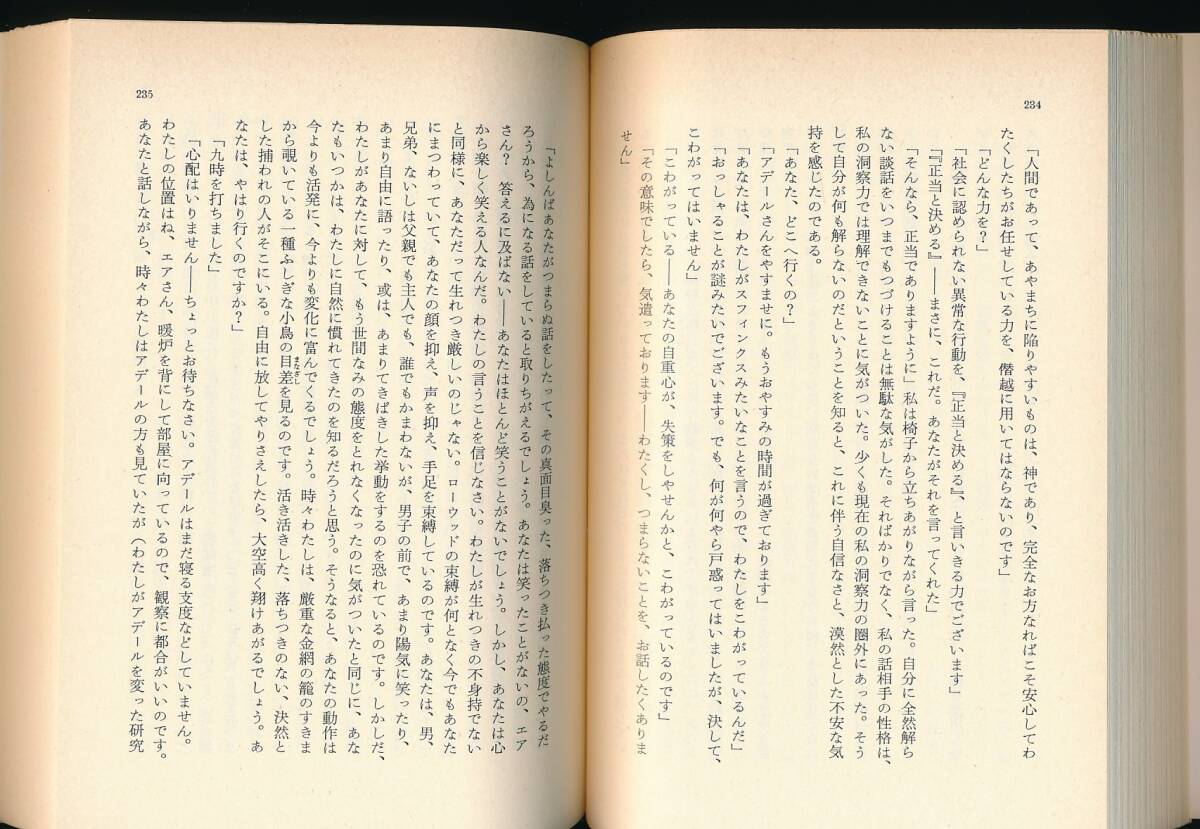 234
「人間であって、あやまちに陥りやすいものは、神であり、完全なお方なればこそ安心してわ
たくしたちがお任せしている力を、僭越に用いてはならないのです」
「どんな力を？」
「社会に認められない異常な行動を、『正当と決める』、と言いきる力でございます」
「『正当と決める』――まさに、これだ。あなたがそれを言ってくれた」
「そんなら、正当でありますように」私は椅子から立ちあがりながら言った。自分に全然解ら
ない談話をいつまでもつづけることは無駄な気がした。そればかりでなく、私の話相手の性格は、
私の洞察力では理解できないことに気がついた。少くも現在の私の洞察力の圏外にあった。そう
して自分が何も解らないのだということを知ると、これに伴う自信なさと、漠然とした不安な気
持を感じたのである。
「あなた、どこへ行くの？」
「アデールさんをやすませに。もうおやすみの時間が過ぎております」
「あなたは、わたしがスフィンクスみたいなことを言うので、わたしをこわがっているんだ」
「おっしゃることが謎みたいでございます。でも、何が何やら戸惑ってはいましたが、決して、
こわがってはいません」
「こわがっている――あなたの自重心が、失策をしやせんかと、こわがっているのです」
「その意味でしたら、気遣っております――わたくし、つまらないことを、お話したくありま
せん」
235
「よしんばあなたがつまらぬ話をしたって、その真面目臭った、落ちつき払った態度でやるだ
ろうから、為になる話をしていると取りちがえるでしょう。あなたは笑ったことがないの、エア
さん？　答えるに及ばない――あなたはほとんど笑うことがないでしょう。しかし、あなたは心
から楽しく笑える人なんだ。わたしの言うことを信じなさい。わたしが生れつきの不身持でない
と同様に、あなただって生れつき厳しいのじゃない。ローウッドの束縛が何となく今でもあなた
にまつわっていて、あなたの顔を抑え、声を抑え、手足を束縛しているのです。あなたは、男、
兄弟、ないしは父親でも主人でも、誰でもかまわないが、男子の前で、あまり陽気に笑ったり、
あまり自由に語ったり、或は、あまりてきぱきした挙動をするのを恐れているのです。しかしだ、
わたしがあなたに対して、もう世間なみの態度をとれなくなったのに気がついたと同じに、あな
たもいつかは、わたしに自然に慣れてきたのを知るだろうと思う。そうなると、あなたの動作は
今よりも活発に、今よりも変化に富んでくるでしょう。時々わたしは、厳重な金網の籠のすきま
から覗いている一種ふしぎな小鳥の目差まなざしを見るのです。活き活きした、落ちつきのない、決然と
した捕われの人がそこにいる。自由に放してやりさえしたら、大空高く翔けあがるでしょう。あ
なたは、やはり行くのですか？」
「九時を打ちました」
「心配はいりません――ちょっとお待ちなさい。アデールはまだ寝る支度などしていません。
わたしの位置はね、エアさん、暖炉を背にして部屋に向っているので、観察に都合がいいのです。
あなたと話しながら、時々わたしはアデールの方も見ていたが（わたしがアデールを変った研究